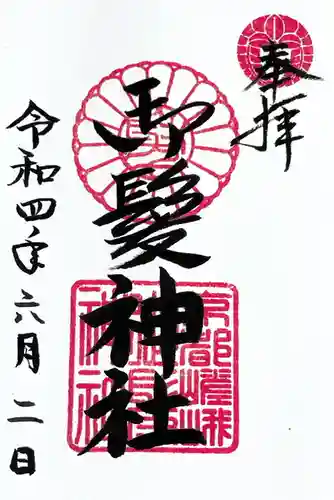 奉拝
御髪神社
京都嵯峨
御髪
神社
令和四年六月二日